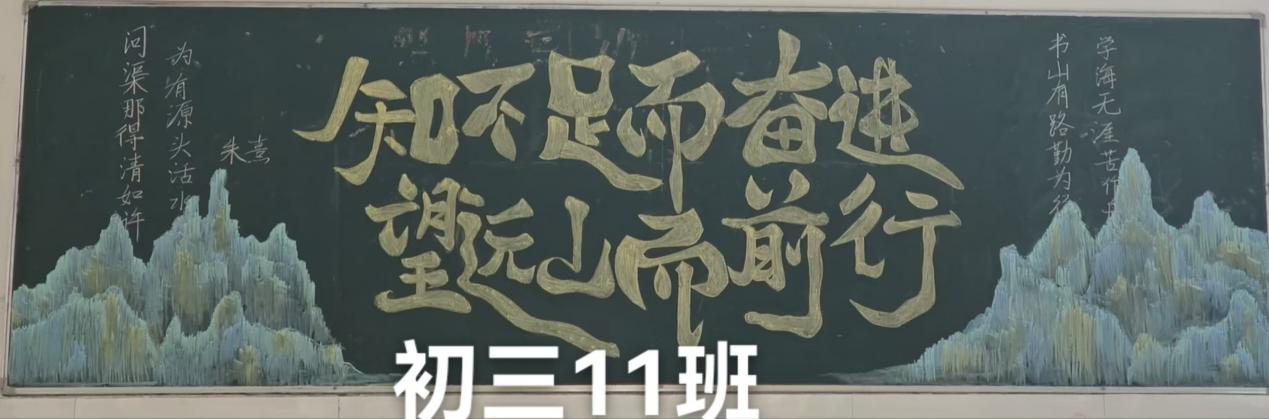 问渠那得清如许
为有源头活水
朱熹
知不足而奋进
望远山而前行
书山有路勤为径
学海无涯苦作舟
初三11班